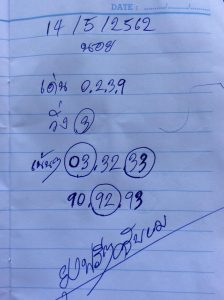 DATE : ...../...../.....
14/5/2562
นอย
เด่น 0.2.3.9
วิ่ง 3
เน้นๆ 03.32.33
90.92.93